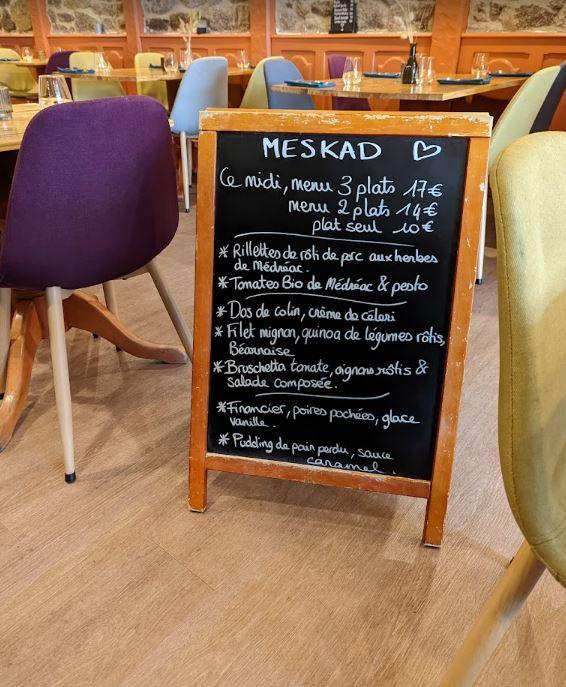 MESKAD ♡
Ce midi, menu 3 plats 17€
menu 2 plats 14€
plat seul 10€
* Rillettes de rôti de porc aux herbes
de Médréac.
* Tomates Bio de Médréac & pesto
* Dos de colin, crème de céleri
* Filet mignon, quinoa de légumes rôtis,
Béarnaise
* Bruschetta tomate, oignons rôtis &
salade composée.
* Financier, poires pochées, glace
vanille.
* Pudding de pain perdu, sauce
caramel.